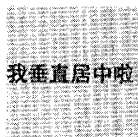 我垂直居中啦